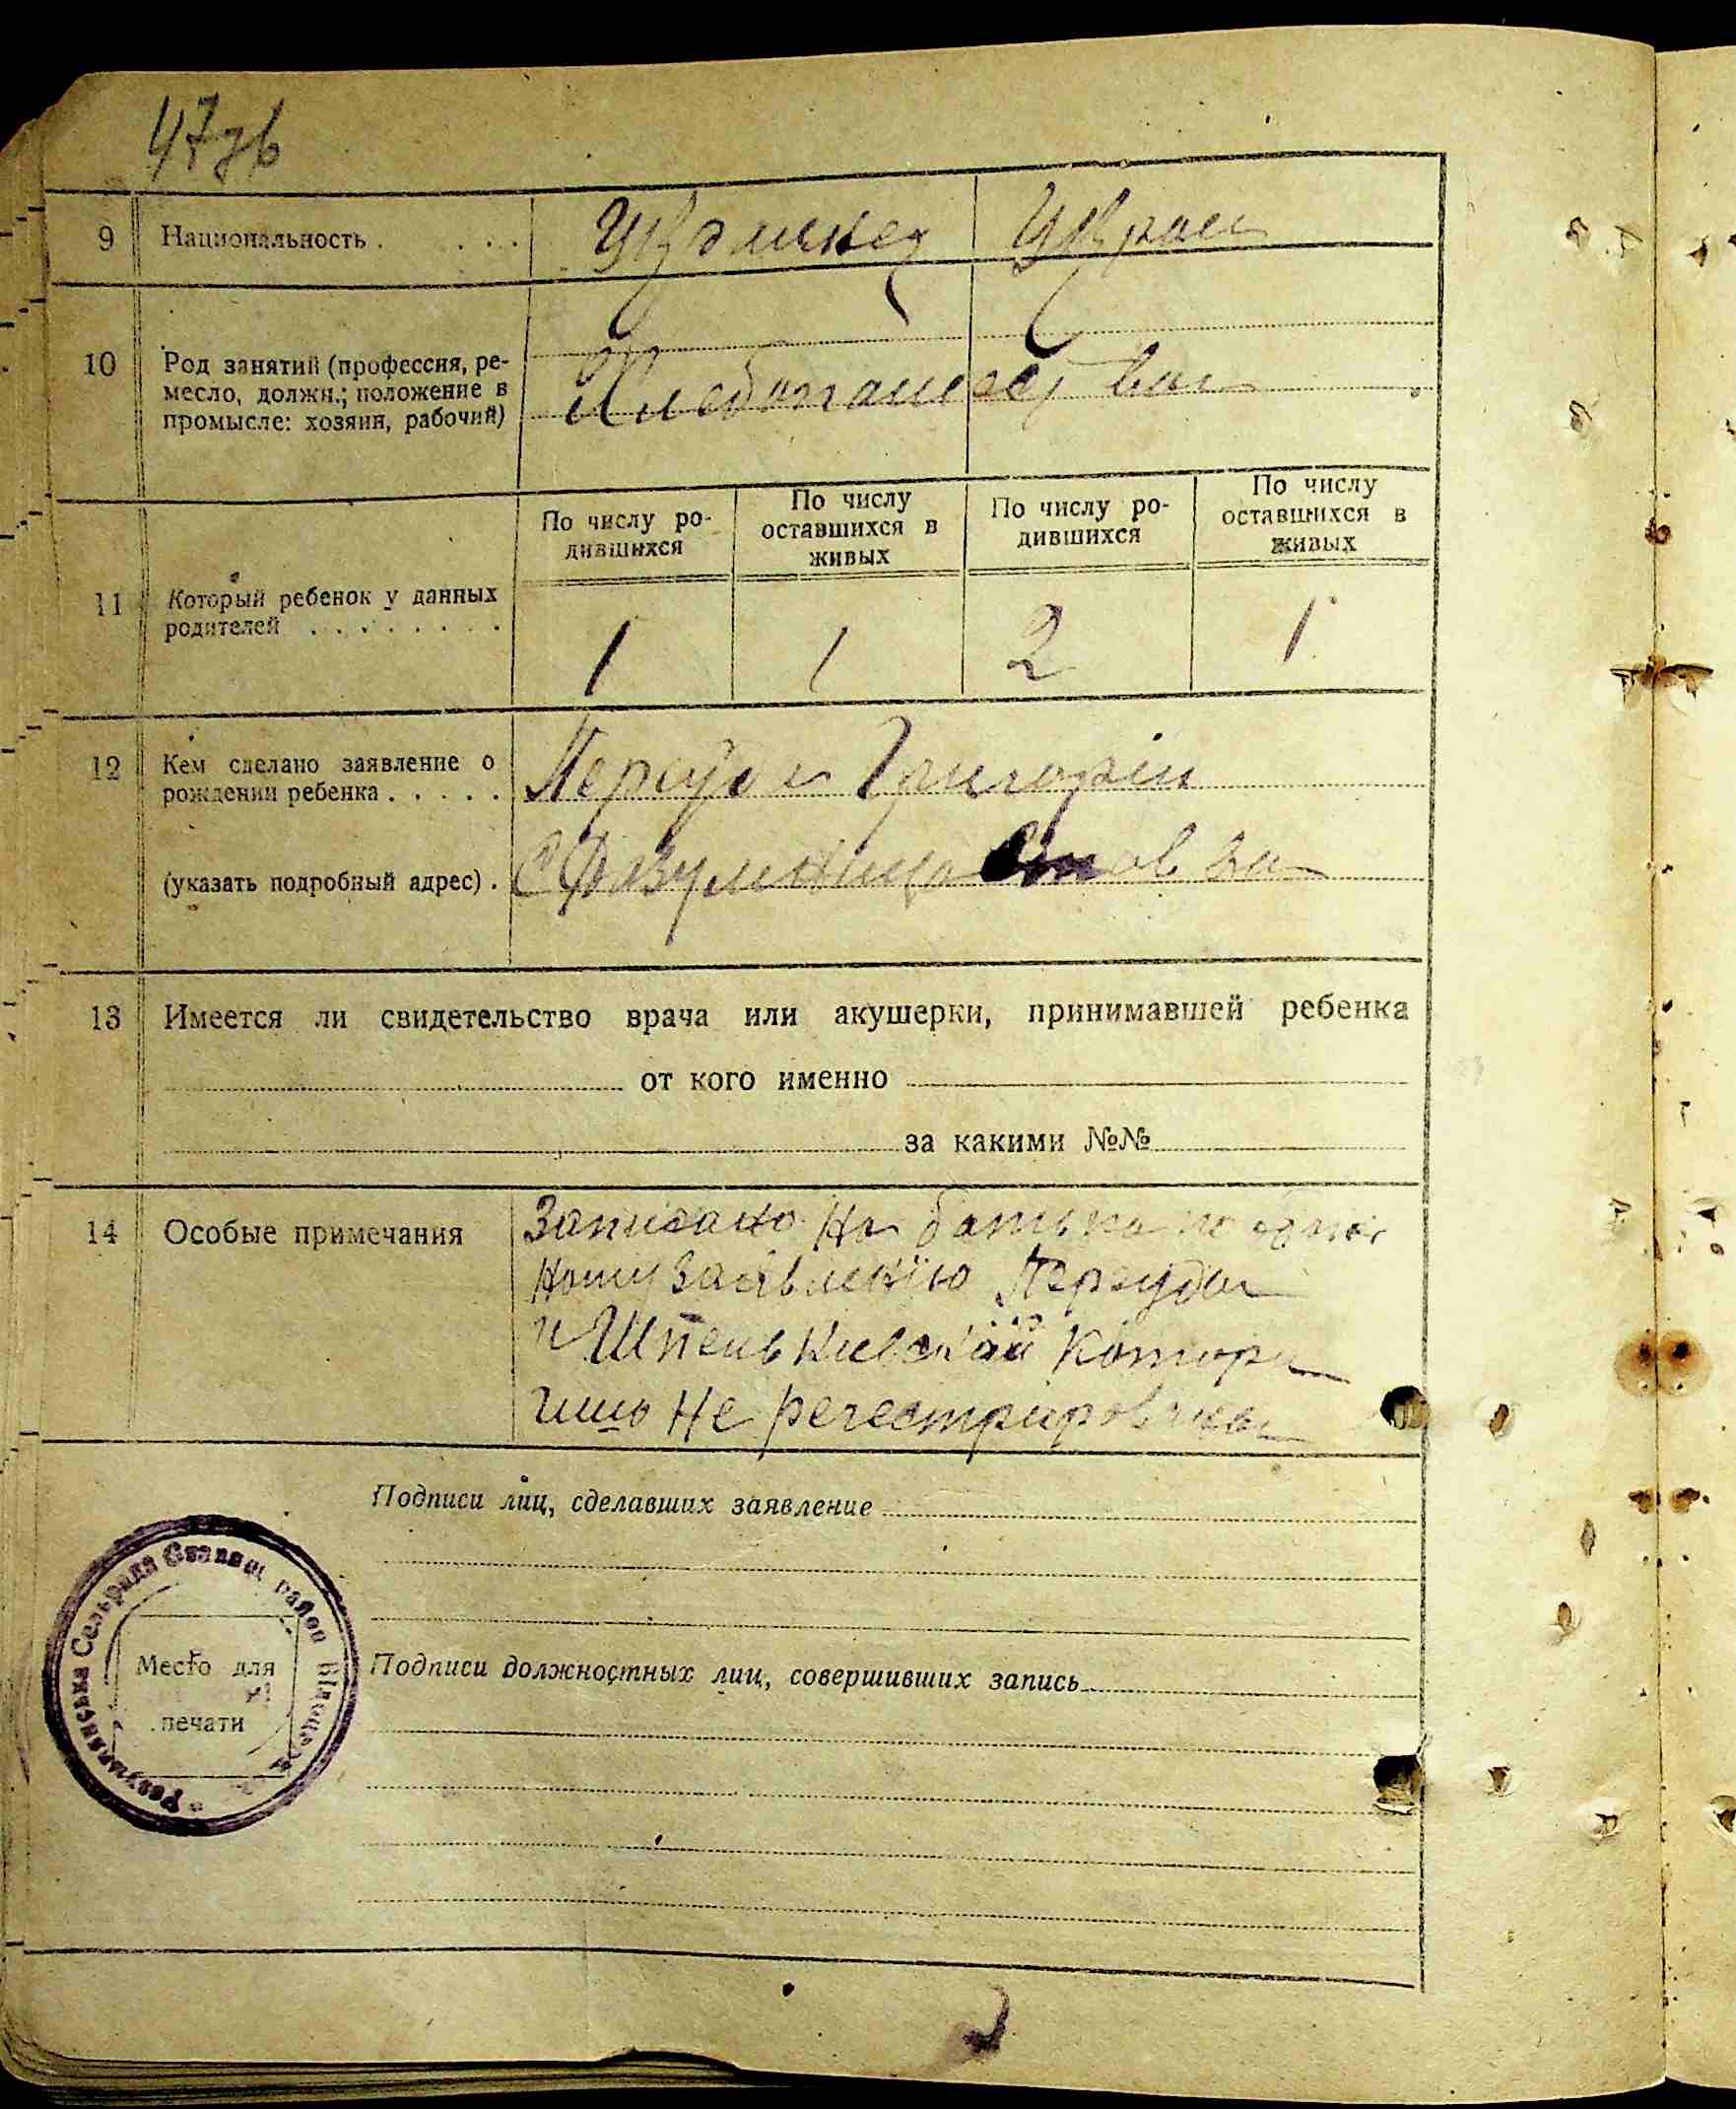 47зв
9 Национальность . . . . Украинец Украин
10 Род занятий (профессия, ре-
месло, должн.; положение в
промысле: хозяин, рабочий)
Хлебопашество
По числу ро-
дившихся
По числу
оставшихся в
живых
По числу ро-
дившихся
По числу
оставшихся в
живых
11 Который ребенок у данных
родителей . . . . . . . .
1 1 2 1
12 Кем сделано заявление о
рождении ребенка . . . . . Персуда Григорій
(указать подробный адрес) . С
13 Имеется ли свидетельство врача или акушерки, принимавшей ребенка
от кого именно
за какими №№
14 Особые примечания
Записано На батька по
ному заявлению Персуды
и Шпеньковской котори
не регестрированы
Подписи лиц, сделавших заявление
Подписи должностных лиц, совершивших запись
Место для
печати
Розумянська Сельрада район